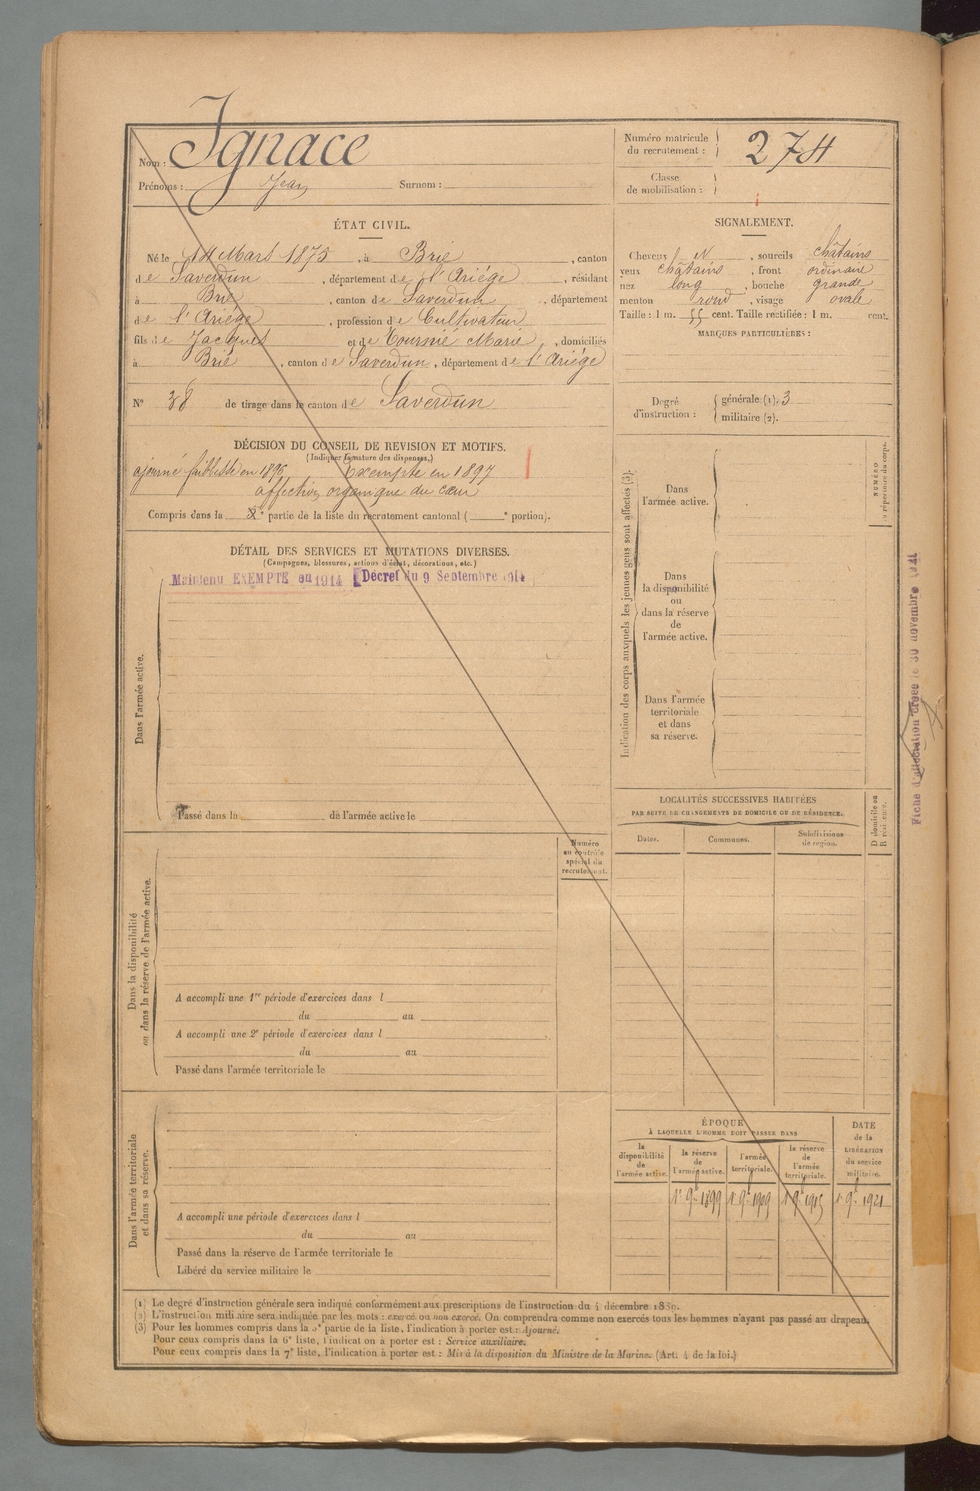 Nom : Ignace
Prénoms : Jean Surnom :
Numéro matricule
du recrutement : 274
Classe
de mobilisation :
ÉTAT CIVIL.
Né le 14 Mars 1875, à Brie, canton
de Saverdun, département de l'Ariége, résidant
à Brie, canton de Saverdun, département
de l'Ariége, profession de Cultivateur
fils de Jacques et de Tournié Marie, domiciliés
à Brie, canton de Saverdun, département de l'Ariége
N° 38 de tirage dans le canton de Saverdun
SIGNALEMENT.
Cheveux N, sourcils châtains
yeux châtains, front ordinaire
nez long, bouche grande
menton rond, visage ovale
Taille : 1 m. 55 cent. Taille rectifiée : 1 m. cent.
MARQUES PARTICULIÈRES :
Degré
d'instruction :
générale (1). 3
militaire (2).
DÉCISION DU CONSEIL DE REVISION ET MOTIFS.
(Indiquer la nature des dispenses.)
ajourné faiblesse en 1896 Exempté en 1897
affection organique du cœur
Compris dans la e partie de la liste du recrutement cantonal ( e portion).
DÉTAIL DES SERVICES ET MUTATIONS DIVERSES.
(Campagnes, blessures, actions d'éclat, décorations, etc.)
Maintenu EXEMPTE en 1914 [Décret du 9 Septembre 1914
Dans l'armée active.
Passé dans la de l'armée active le
Numéro
au contrôle
spécial du
recrutement.
Dans la disponibilité
ou dans la réserve de l'armée active.
A accompli une 1re période d'exercices dans l
du au
A accompli une 2e période d'exercices dans l
du au
Passé dans l'armée territoriale le
Dans l'armée territoriale
et dans sa réserve.
A accompli une période d'exercices dans l
du au
Passé dans la réserve de l'armée territoriale le
Libéré du service militaire le
Indication des corps auxquels les jeunes gens sont affectés (3).
Dans
l'armée active.
Dans
la disponibilité
ou
dans la réserve
de
l'armée active.
Dans l'armée
territoriale
et dans
sa réserve.
NUMÉRO
au répertoire du corps.
LOCALITÉS SUCCESSIVES HABITÉES
PAR SUITE DE CHANGEMENTS DE DOMICILE OU DE RÉSIDENCE.
Dates.
Communes.
Subdivisions
de région.
D domicile ou
R résidence.
ÉPOQUE
À LAQUELLE L'HOMME DOIT PASSER DANS
la
disponibilité
de
l'armée active.
la réserve
de
l'armée active.
l'armée
territoriale.
la réserve
de
l'armée
territoriale.
DATE
de la
LIBÉRATION
du service
militaire.
1er 9bre 1899 1er 9bre 1909 1er 9bre 1915 1er 9bre 1921
Fiche d'allocation créée le 30 novembre 1941
(1) Le degré d'instruction générale sera indiqué conformément aux prescriptions de l'instruction du 4 décembre 1889.
(2) L'instruction militaire sera indiquée par les mots : exercé ou non exercé. On comprendra comme non exercés tous les hommes n'ayant pas passé au drapeau.
(3) Pour les hommes compris dans la 5e partie de la liste, l'indication à porter est : Ajourné.
Pour ceux compris dans la 6e liste, l'indication à porter est : Service auxiliaire.
Pour ceux compris dans la 7e liste, l'indication à porter est : Mis à la disposition du Ministre de la Marine. (Art. 4 de la loi.)